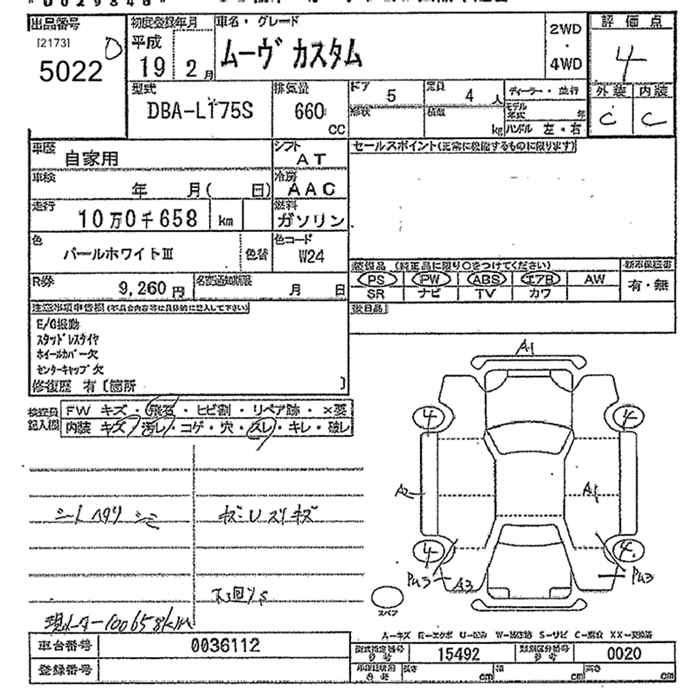 出品番号
[2173]
5022
初度登録年月
平成
19 2月
車名・グレード
ムーヴ カスタム
2WD
・
4WD
評価点
4
外装 内装
C C
型式
DBA-L175S
排気量
660
CC
ドア
5
定員
4 人
形状
積載
kg
ディーラー・並行
モデル
年式 年
ハンドル 左・右
車歴
自家用
シフト
AT
セールスポイント(正常に機能するものに限ります)
車検
年 月( 日)
冷房
AAC
走行
10万0千658 km
燃料
ガソリン
色
パールホワイトⅢ
色替
色コード
W24
装備品 (純正品に限り○をつけてください)
PS PW ABS エアB AW
SR ナビ TV カワ
新車保証書
有・無
R券
9,260 円
名変通知期限
月 日
後日品
注意事項申告欄
E/G振動
スタッドレスタイヤ
ホイールカバー欠
センターキャップ欠
修復歴 有 〔箇所 〕
検査員
記入欄
FW キズ・飛石・ヒビ割・リペア跡・×要
内装 キズ・汚レ・コゲ・穴・スレ・キレ・破レ
シートヘタリ シミ
キズ・Uスリキズ
下回りS
現メーター100658km
A1
4 4
A2 A1
4 4
PU3 A3 PU3
スペア
車台番号
0036112
登録番号
A-キズ E-エクボ U-凹み W-波修跡 S-サビ C-腐食 XX-交換済
型式指定番号
15492
類別区分番号
0020
長さ cm
幅 cm
高さ cm